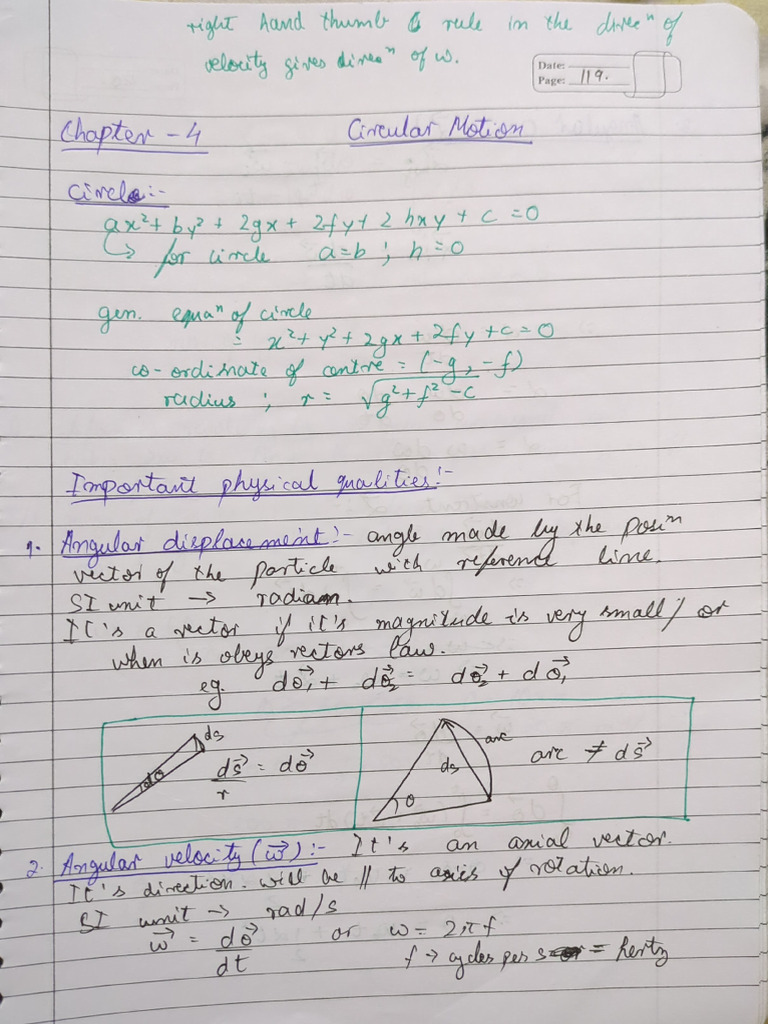 right hand thumb rule in the direcⁿ of
velocity gives direcⁿ of w.
Date:
Page: 119.
Chapter - 4 Circular Motion
Circle:-
ax² + by² + 2gx + 2fy + 2hxy + c = 0
↳ for circle a=b ; h=0
gen. equaⁿ of circle
= x² + y² + 2gx + 2fy + c = 0
co-ordinate of centre = (-g, -f)
radius ; r = √g² + f² - c
Important physical qualities:-
1. Angular displacement:- angle made by the posiⁿ
vector of the particle with reference line.
SI unit → radian.
It's a vector if it's magnitude is very small / or
when is obeys vectors law.
eg. dθ⃗₁ + dθ⃗₂ = dθ⃗₂ + dθ⃗₁
ds
dθ
ds⃗/r = dθ⃗
arc
ds
θ
arc ≠ ds⃗
2. Angular velocity (w⃗):- It's an axial vector.
It's direction will be // to axis of rotation.
SI unit → rad/s
w⃗ = dθ⃗/dt or w = 2πf
f → cycles per = hertz